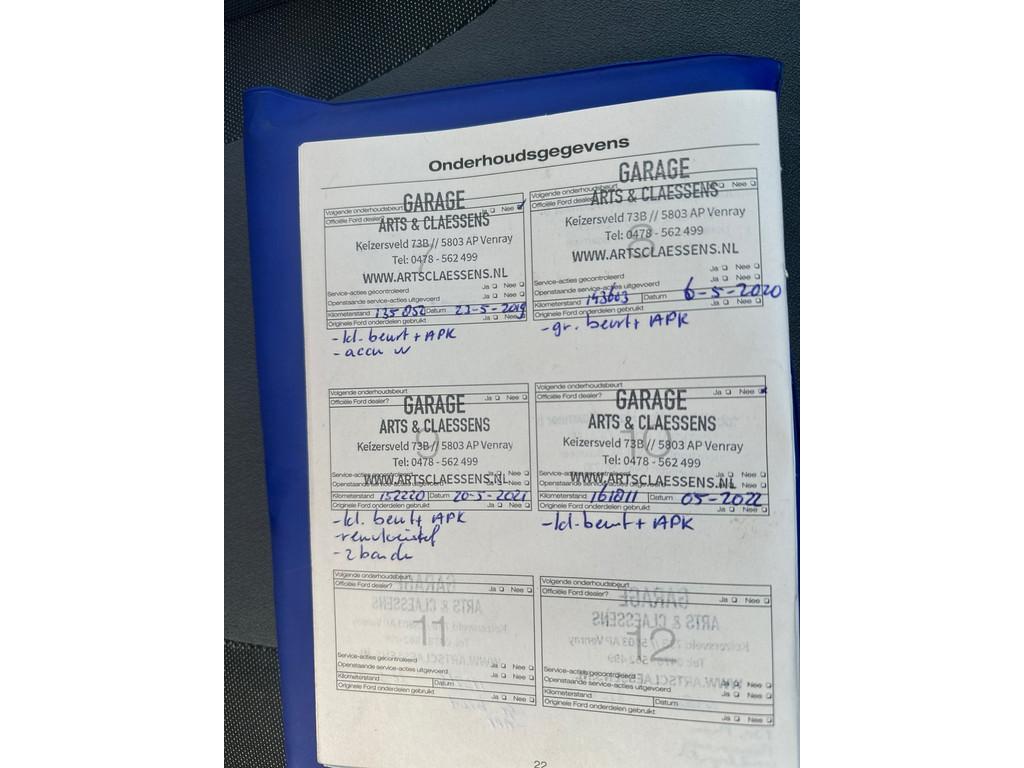 Onderhoudsgegevens
Volgende onderhoudsbeurt
Officiële Ford dealer? Ja Nee
GARAGE
ARTS & CLAESSENS
Keizersveld 73B // 5803 AP Venray
Tel: 0478 - 562 499
WWW.ARTSCLAESSENS.NL
Service-acties gecontroleerd Ja Nee
Openstaande service-acties uitgevoerd Ja Nee
Kilometerstand 135052 Datum 23-5-2019
Originele Ford onderdelen gebruikt Ja Nee
- kl. beurt + APK
- accu w
Volgende onderhoudsbeurt
Officiële Ford dealer? Ja Nee
GARAGE
ARTS & CLAESSENS
Keizersveld 73B // 5803 AP Venray
8
Tel: 0478 - 562 499
WWW.ARTSCLAESSENS.NL
Ja Nee
Service-acties gecontroleerd Ja Nee
Openstaande service-acties uitgevoerd Ja Nee
Kilometerstand 143603 Datum 6-5-2020
Originele Ford onderdelen gebruikt Ja Nee
- gr. beurt + APK
Volgende onderhoudsbeurt
Officiële Ford dealer? Ja Nee
GARAGE
ARTS & CLAESSENS
9
Keizersveld 73B // 5803 AP Venray
Tel: 0478 - 562 499
WWW.ARTSCLAESSENS.NL
Service-acties gecontroleerd Ja Nee
Openstaande service-acties uitgevoerd Ja Nee
Kilometerstand 152220 Datum 20-5-2021
Originele Ford onderdelen gebruikt Ja Nee
- kl. beurt + APK
- 2 banden
Volgende onderhoudsbeurt
Officiële Ford dealer? Ja Nee
GARAGE
ARTS & CLAESSENS
10
Keizersveld 73B // 5803 AP Venray
Tel: 0478 - 562 499
WWW.ARTSCLAESSENS.NL
Service-acties gecontroleerd Ja Nee
Openstaande service-acties uitgevoerd Ja Nee
Kilometerstand 161811 Datum 05-2022
Originele Ford onderdelen gebruikt Ja Nee
- kl. beurt + APK
Volgende onderhoudsbeurt
Officiële Ford dealer? Ja Nee
11
Service-acties gecontroleerd Ja Nee
Openstaande service-acties uitgevoerd Ja Nee
Kilometerstand Datum
Originele Ford onderdelen gebruikt Ja Nee
Volgende onderhoudsbeurt
Officiële Ford dealer? Ja Nee
12
Service-acties gecontroleerd Ja Nee
Openstaande service-acties uitgevoerd Ja Nee
Kilometerstand Datum
Originele Ford onderdelen gebruikt Ja Nee
22